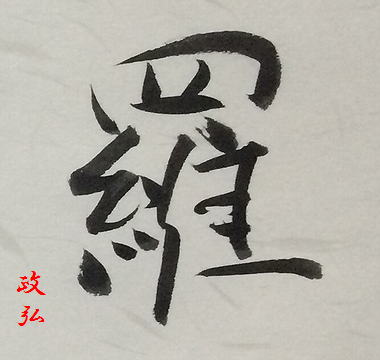 羅
政
弘